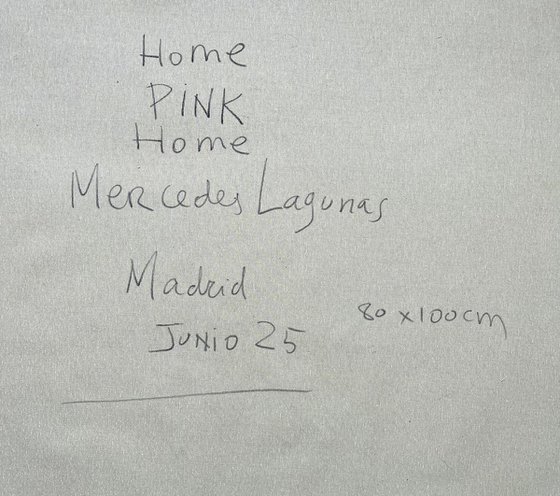 Home
PiNK
Home
Mercedes Lagunas
Madrid
80 x 100 cm
Junio 25